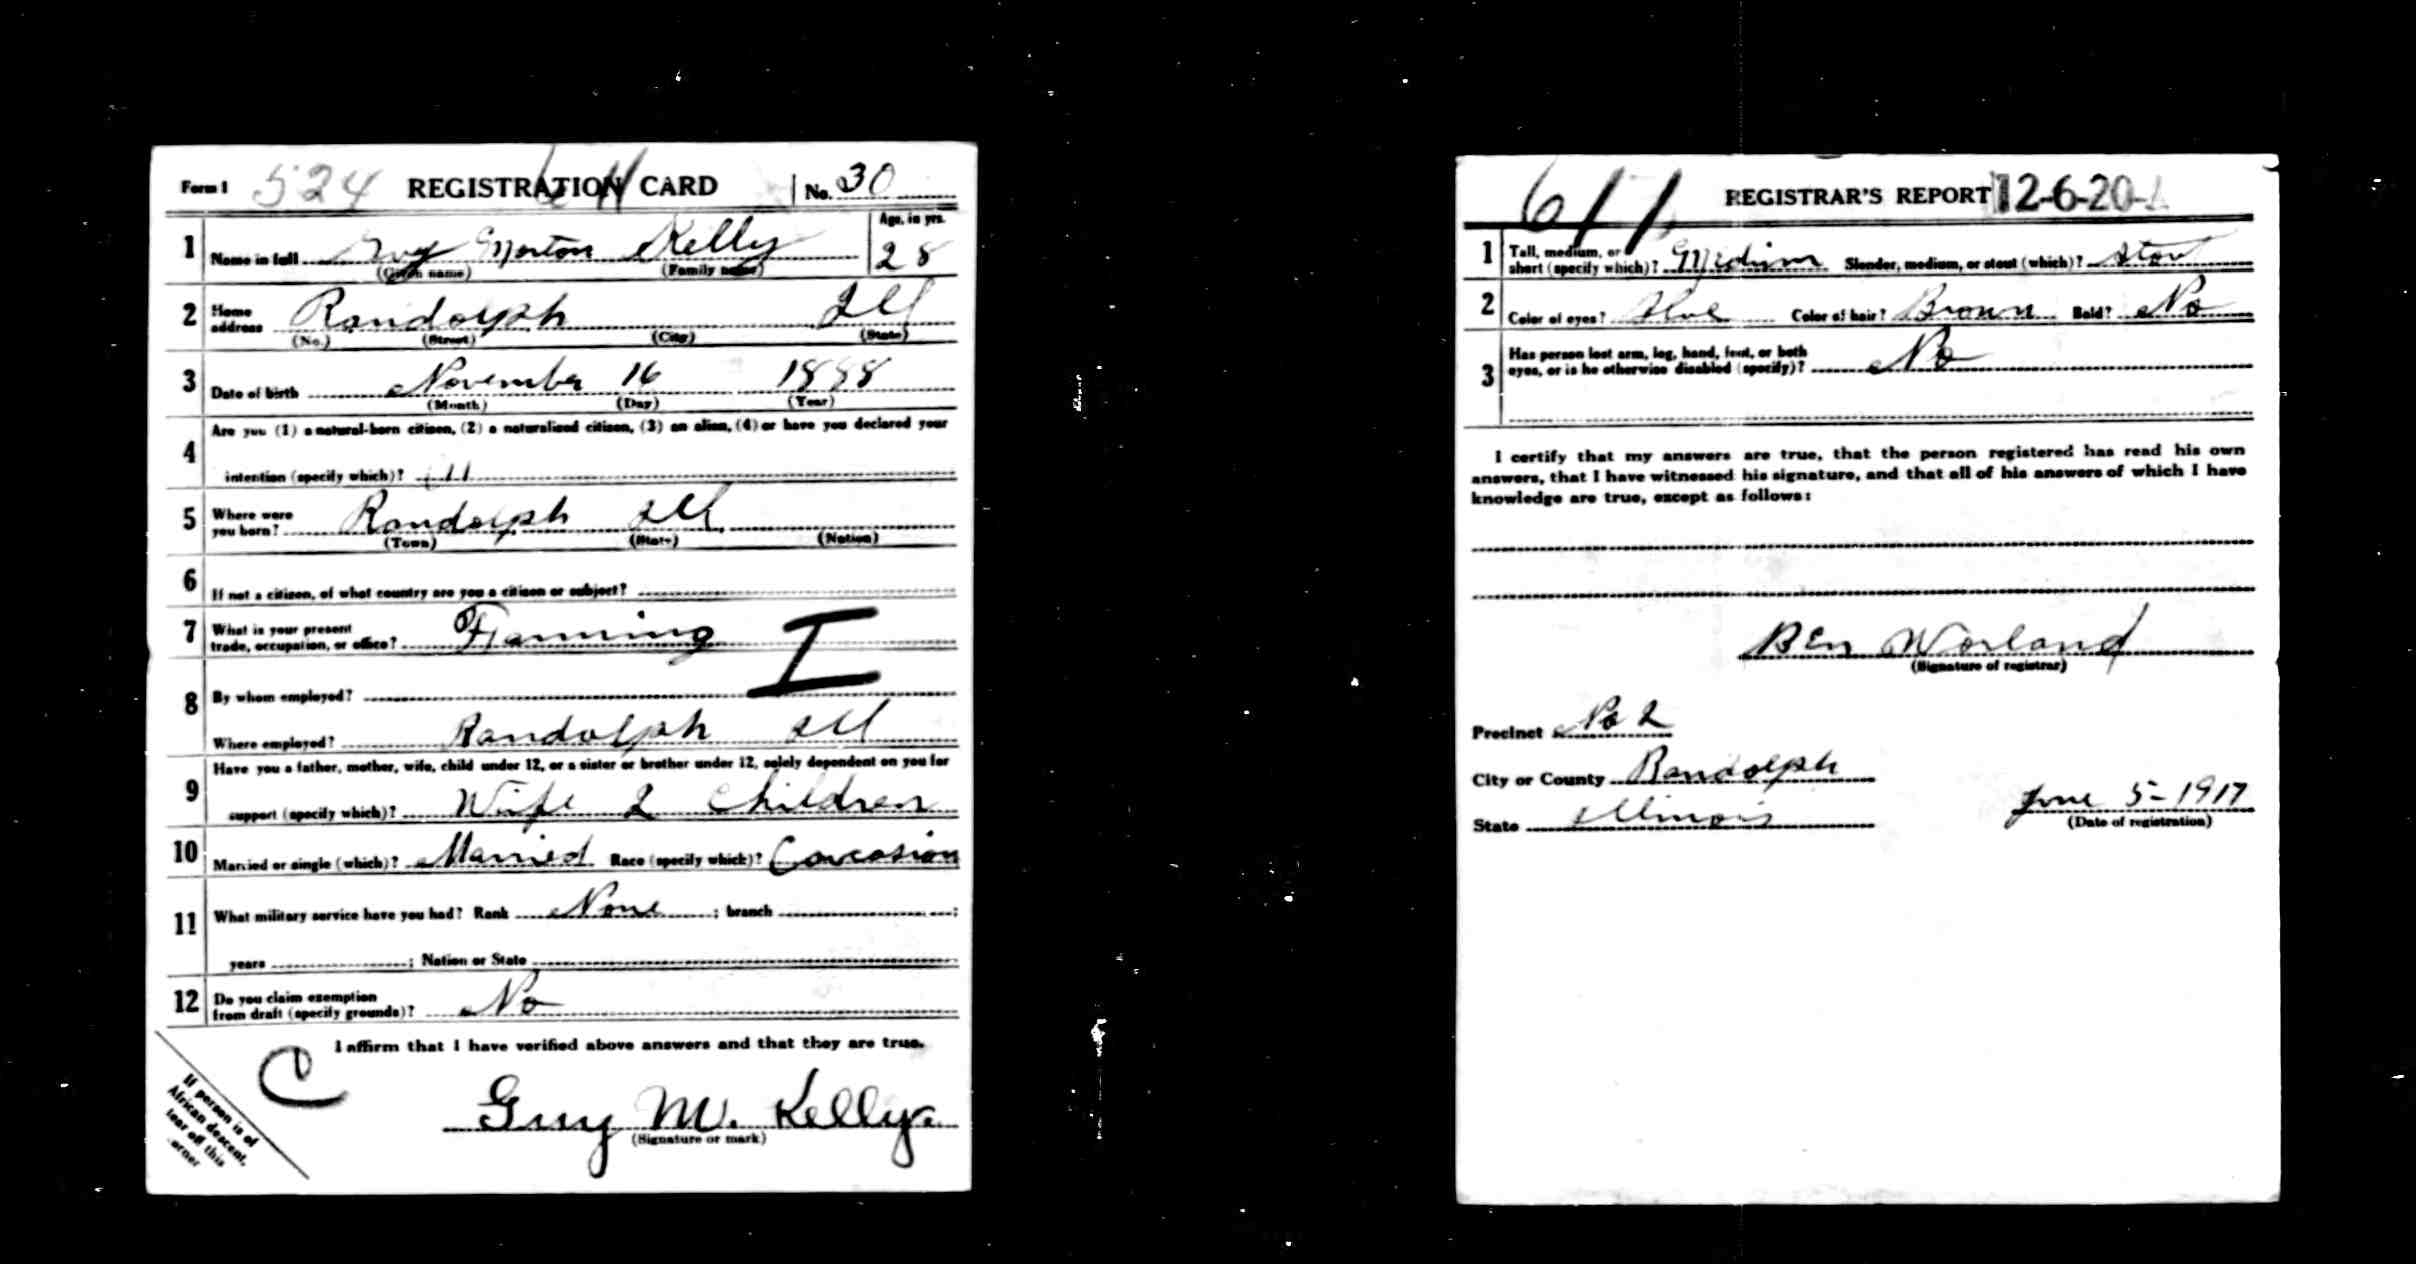 Form 1 524 REGISTRATION CARD 611 No. 30
1 Name in full Guy Morton Kelly Age, in yrs. 28
(Given name) (Family name)
2 Home address Randolph Ill
(No.) (Street) (City) (State)
3 Date of birth November 16 1888
(Month) (Day) (Year)
4 Are you (1) a natural-born citizen, (2) a naturalized citizen, (3) an alien, (4) or have you declared your
intention (specify which)?
5 Where were you born? Randolph Ill
(Town) (State) (Nation)
6 If not a citizen, of what country are you a citizen or subject?
7 What is your present trade, occupation, or office? Farming I
8 By whom employed?
Where employed? Randolph Ill
9 Have you a father, mother, wife, child under 12, or a sister or brother under 12, solely dependent on you for
support (specify which)? Wife 2 Children
10 Married or single (which)? Married Race (specify which)? Caucasion
11 What military service have you had? Rank None ; branch ;
years ; Nation or State
12 Do you claim exemption from draft (specify grounds)? No
I affirm that I have verified above answers and that they are true.
C
Guy M. Kelly.
(Signature or mark)
If person is of
African descent,
tear off this
corner
611 REGISTRAR'S REPORT 12-6-20-
1 Tall, medium, or short (specify which)? Medium Slender, medium, or stout (which)? Stou
2 Color of eyes? Color of hair? Brown Bald? No
3 Has person lost arm, leg, hand, foot, or both eyes, or is he otherwise disabled (specify)? No
I certify that my answers are true, that the person registered has read his own
answers, that I have witnessed his signature, and that all of his answers of which I have
knowledge are true, except as follows:
Ben Worland
(Signature of registrar)
Precinct No 2
City or County Randolph
State Illinois
June 5-1917
(Date of registration)